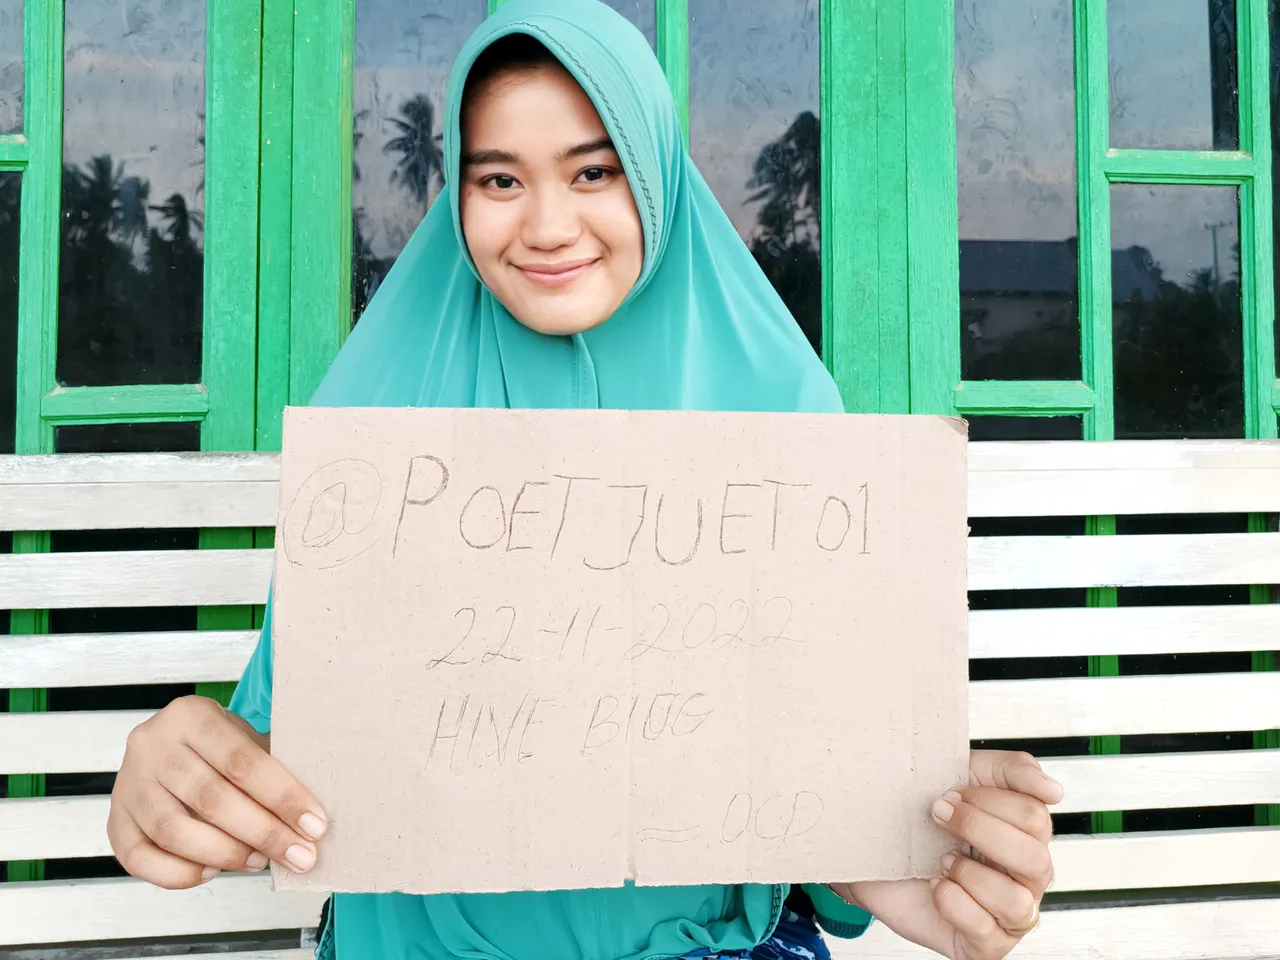 @POETJUET01
22-11-2022
HIVE BLOG
OCD